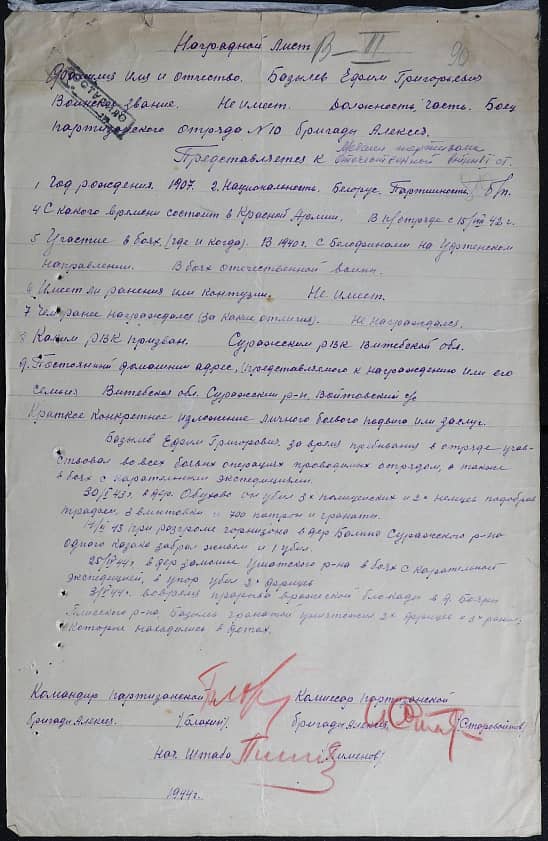 Наградной Лист
В-III
90
Фамилия Имя и отчество. Базылев Ефим Григорьевич
Воинское звание. Не имеет. Должность, часть. Боец
партизанского отряда N10 бригады Алексея.
Представляется к Медали партизана
отечественной войны I ст.
1 Год рождения. 1907. 2. Национальность. Белорус. Партийность. Б/п.
4 С какого времени состоит в Красной Армии. В п/отряде с 15/VIII 42 г.
5 Участие в боях (где и когда). В 1940г. С белофинами на
направлении. В боях отечественной войны.
6 Имеет ли ранения или контузии. Не имеет.
7 Чем ранее награждался (за какие отличия). Не награждался.
8 Каким РВК призван. Суражским РВК Витебской обл.
9. Постоянный домашний адрес, представляемого к награждению или его
семьи Витебская обл. Суражский р-н, Войтовский с/с
Краткое конкретное изложение личного боевого подвига или заслуг.
Базылев Ефим Григорович, за время пребывания в отряде участ-
ствовал во всех боевых операциях проводимых отрядом, а также
в боях с карательными экспедициями.
в дер. Обухово он убил 3х полицейских и 2х немцев подобрав
трофеем, 3 винтовки и 700 патрон и гранаты.
43 при разгроме горнизона в дер Суражского р-на
одного казака забрал живьем и 1 убил.
44г. в дер Ушатского р-на в боях с карательной
экспедицией, в упор убил 2х фрицев
44г. во время прорыва вражеской блокады в д.
р-на. Базылев гранатой уничтожил 2х фрицев и 3х ранил,
которые находились в
Командир партизанской Комиссар партизанской
бригады Алексея. /Блохин/. бригады Алексея /Старовойтов/
Нач. Штаба /Пименов/
1944г.